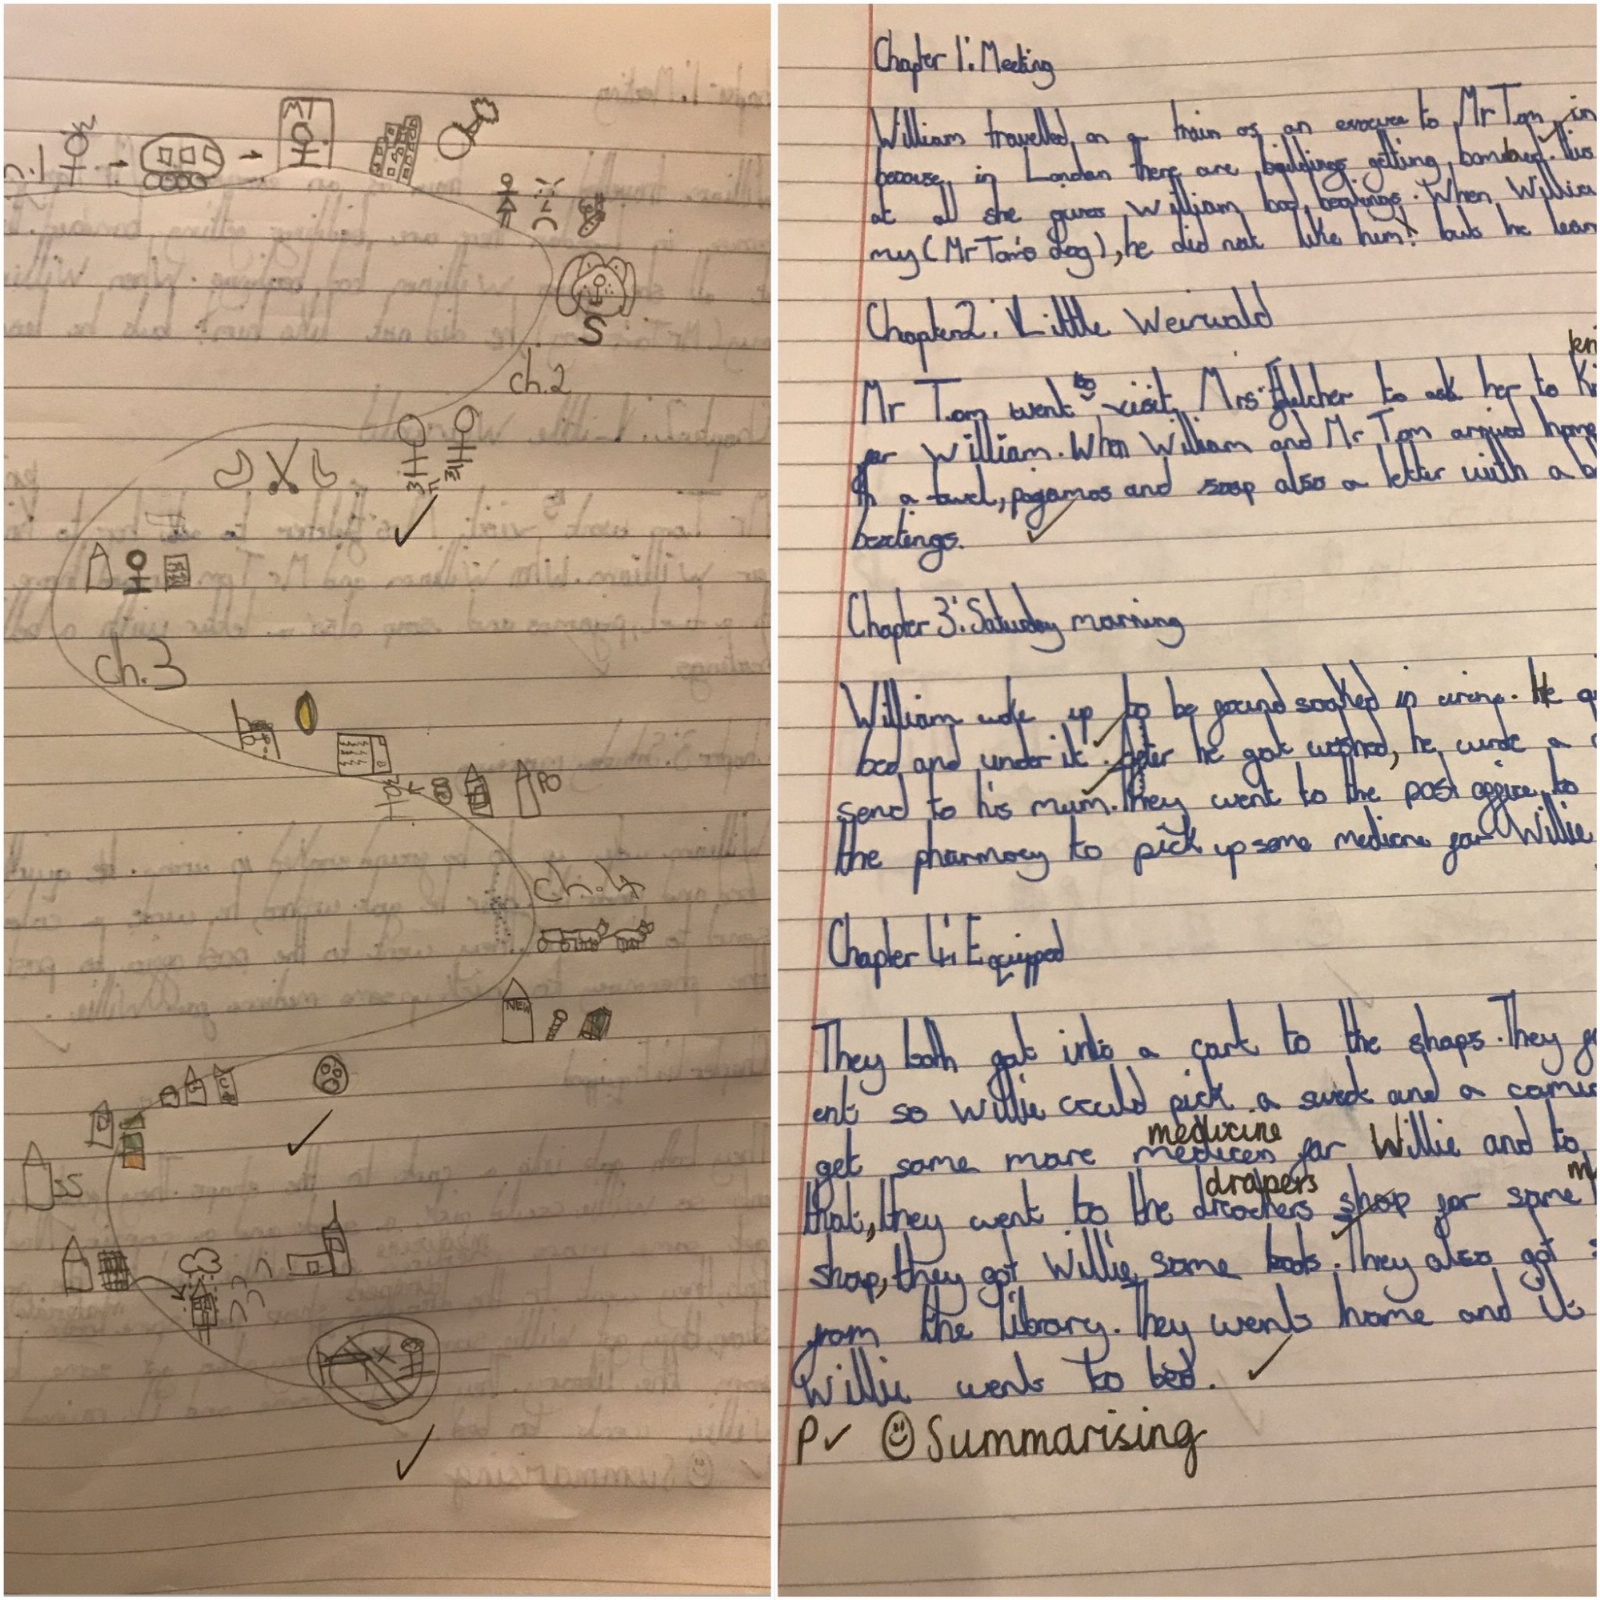 ch.1
MT
S
ch.2
ch.3
PO
ch.4
NEW
SS
Chapter 1: Meeting
William travelled on a train as an to Mr Tom in
because in London there are buildings getting bombed. His
at all she gives William bad beatings. When William
my (Mr Tom's dog), he did not like him! but he lear
Chapter 2: Little Weirwald
kni
Mr Tom went to visit Mrs Fletcher to ask her to Kn
for William. When William and Mr Tom arrived home
a towel, pyjamas and soap also a letter with a b
beatings.
Chapter 3: Saturday morning
William woke up to be found soaked in urine. He qu
bed and under it. After he got washed, he wrote a c
send to his mum. They went to the post office to
the pharmacy to pick up some medicine for Willie
Chapter 4: Equipped
They both got into a cart to the shops. They g
ent so Willie could pick a and a
medicine
get some more medicen for Willie and to
drapers
that, they went to the shop for some
shop, they got Willie some boots. They also got s
from the library. They went home and it
Willie went to bed.
P✓ ☺ Summarising